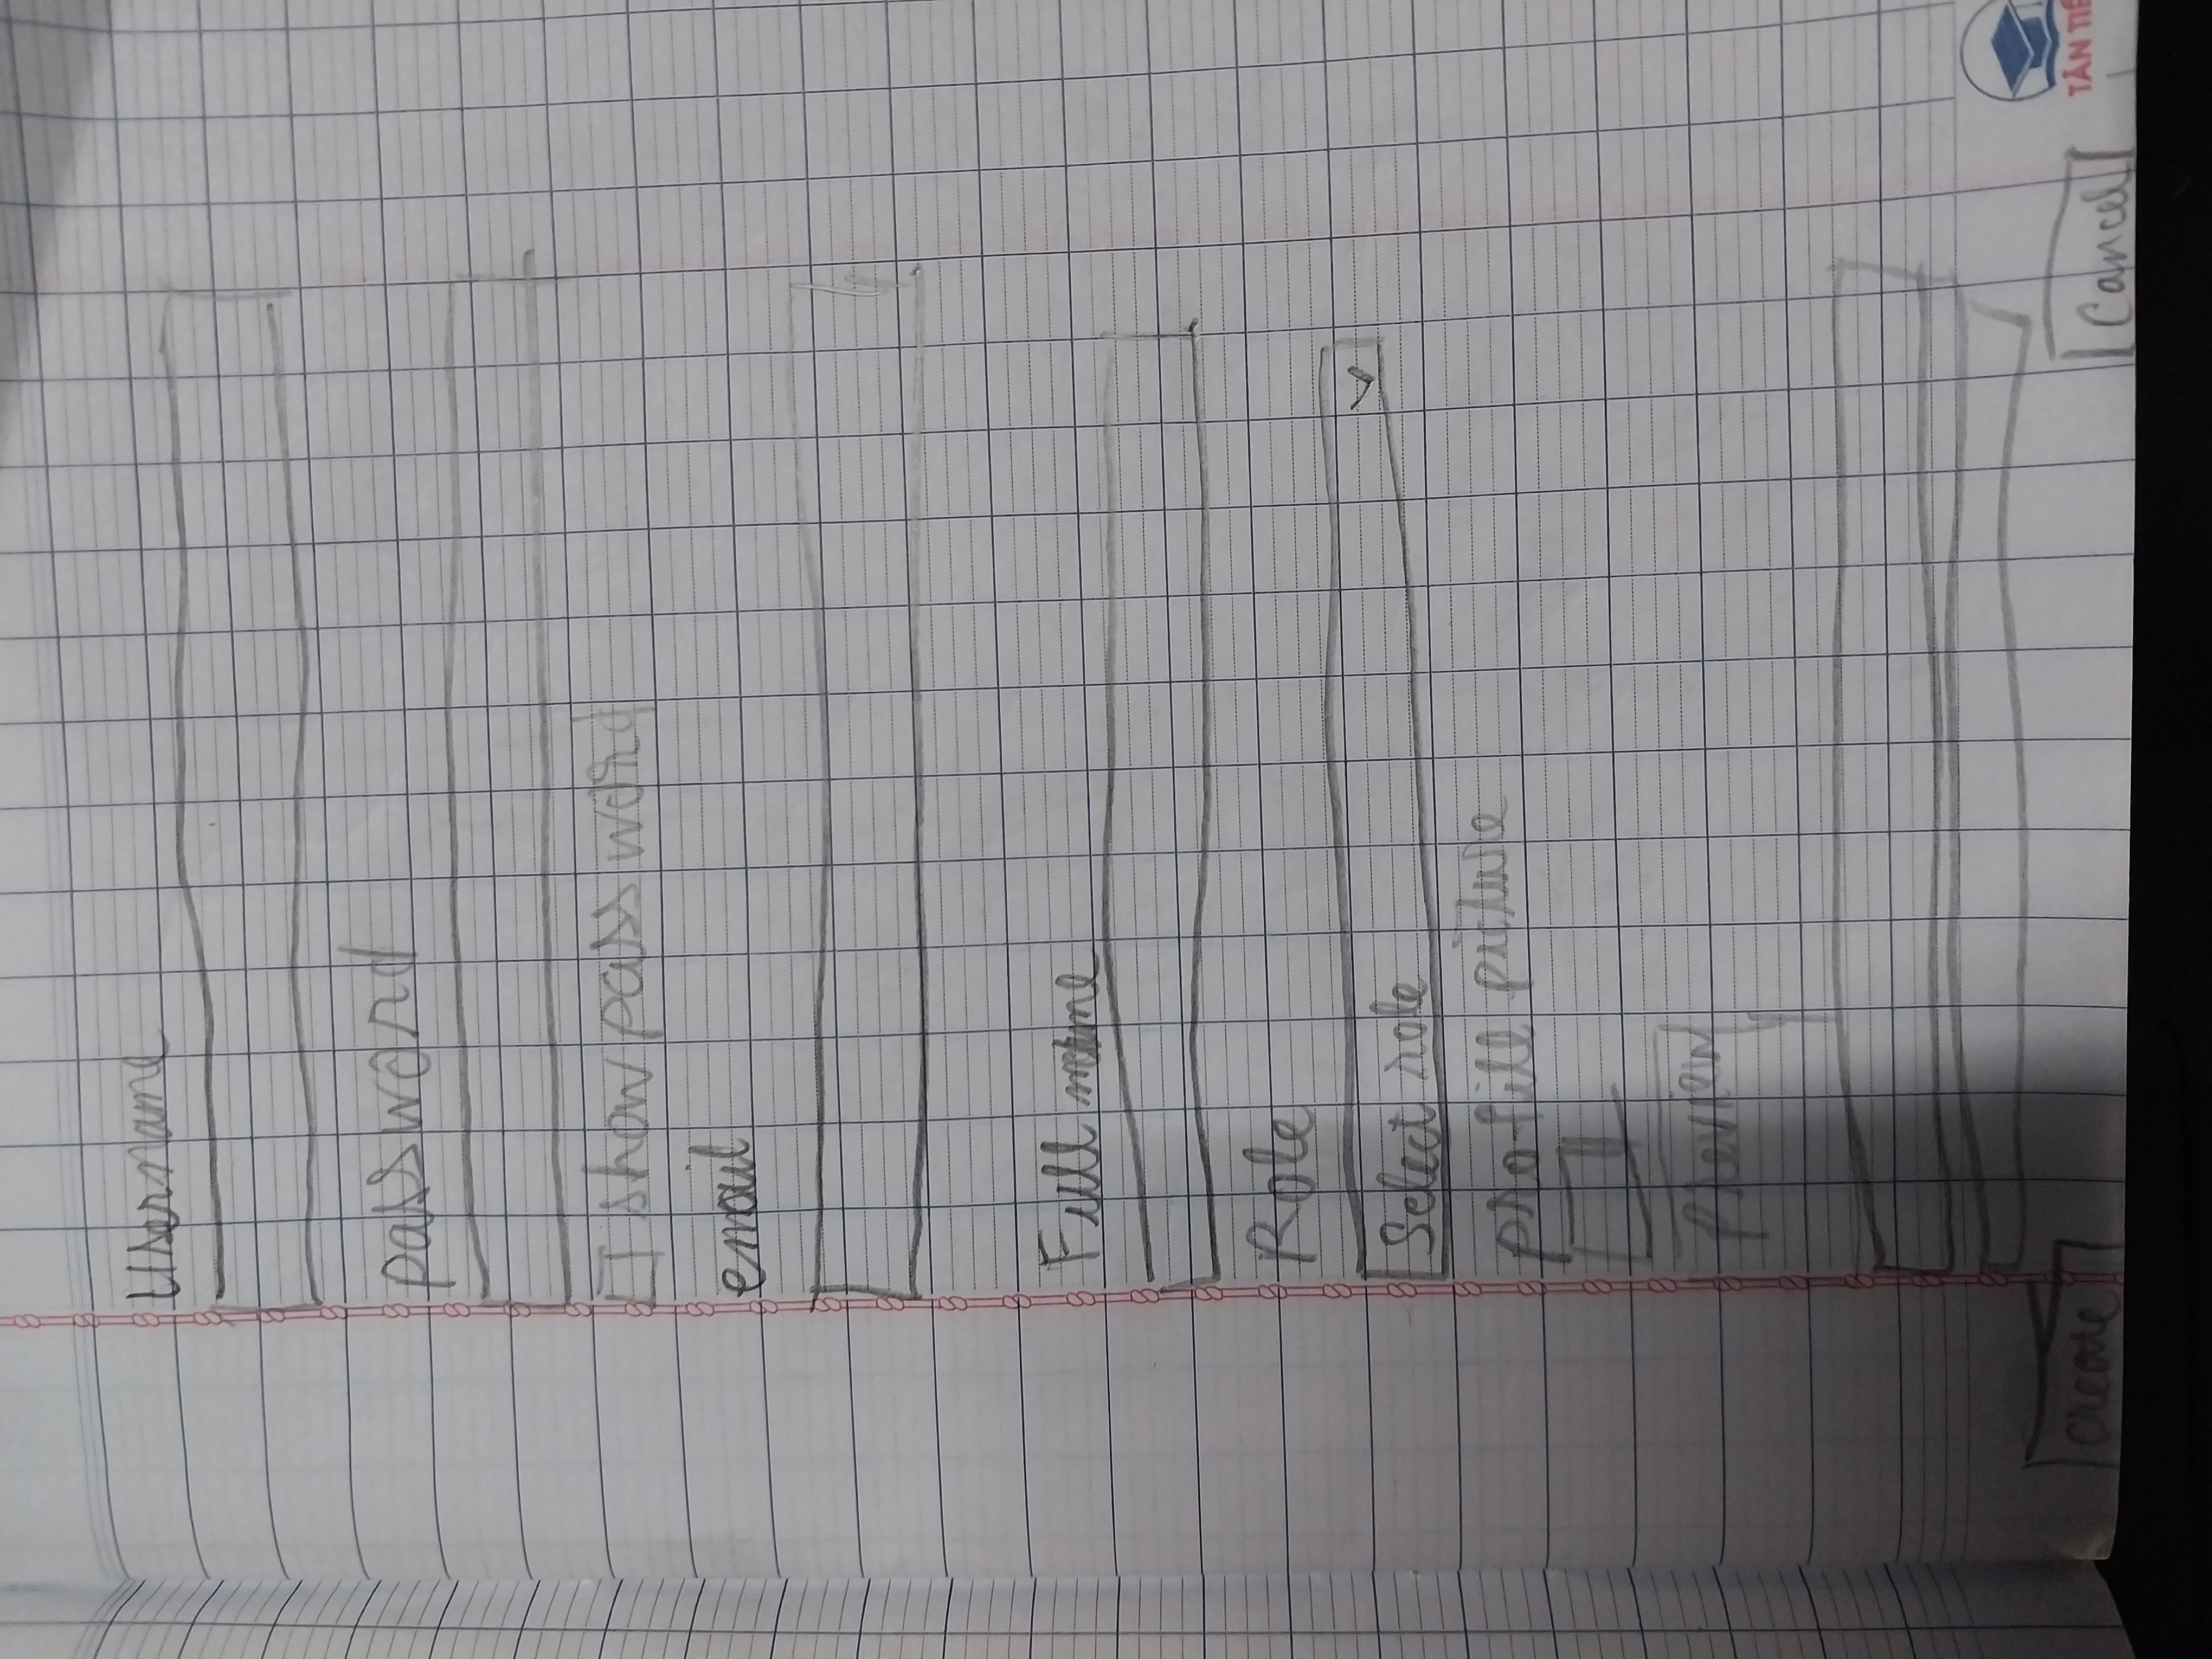 Username
password
show password
email
Full name
Role
Select role
profill picture
preview
Create
Cancel
TÂN TIẾ